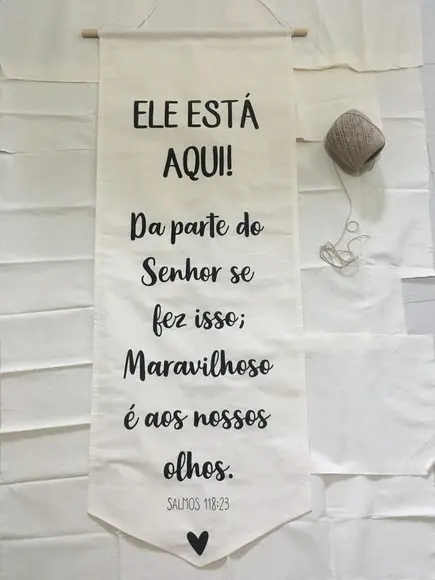 ELE ESTÁ
AQUI!
Da parte do
Senhor se
fez isso;
Maravilhoso
é aos nossos
olhos.
SALMOS 118:23